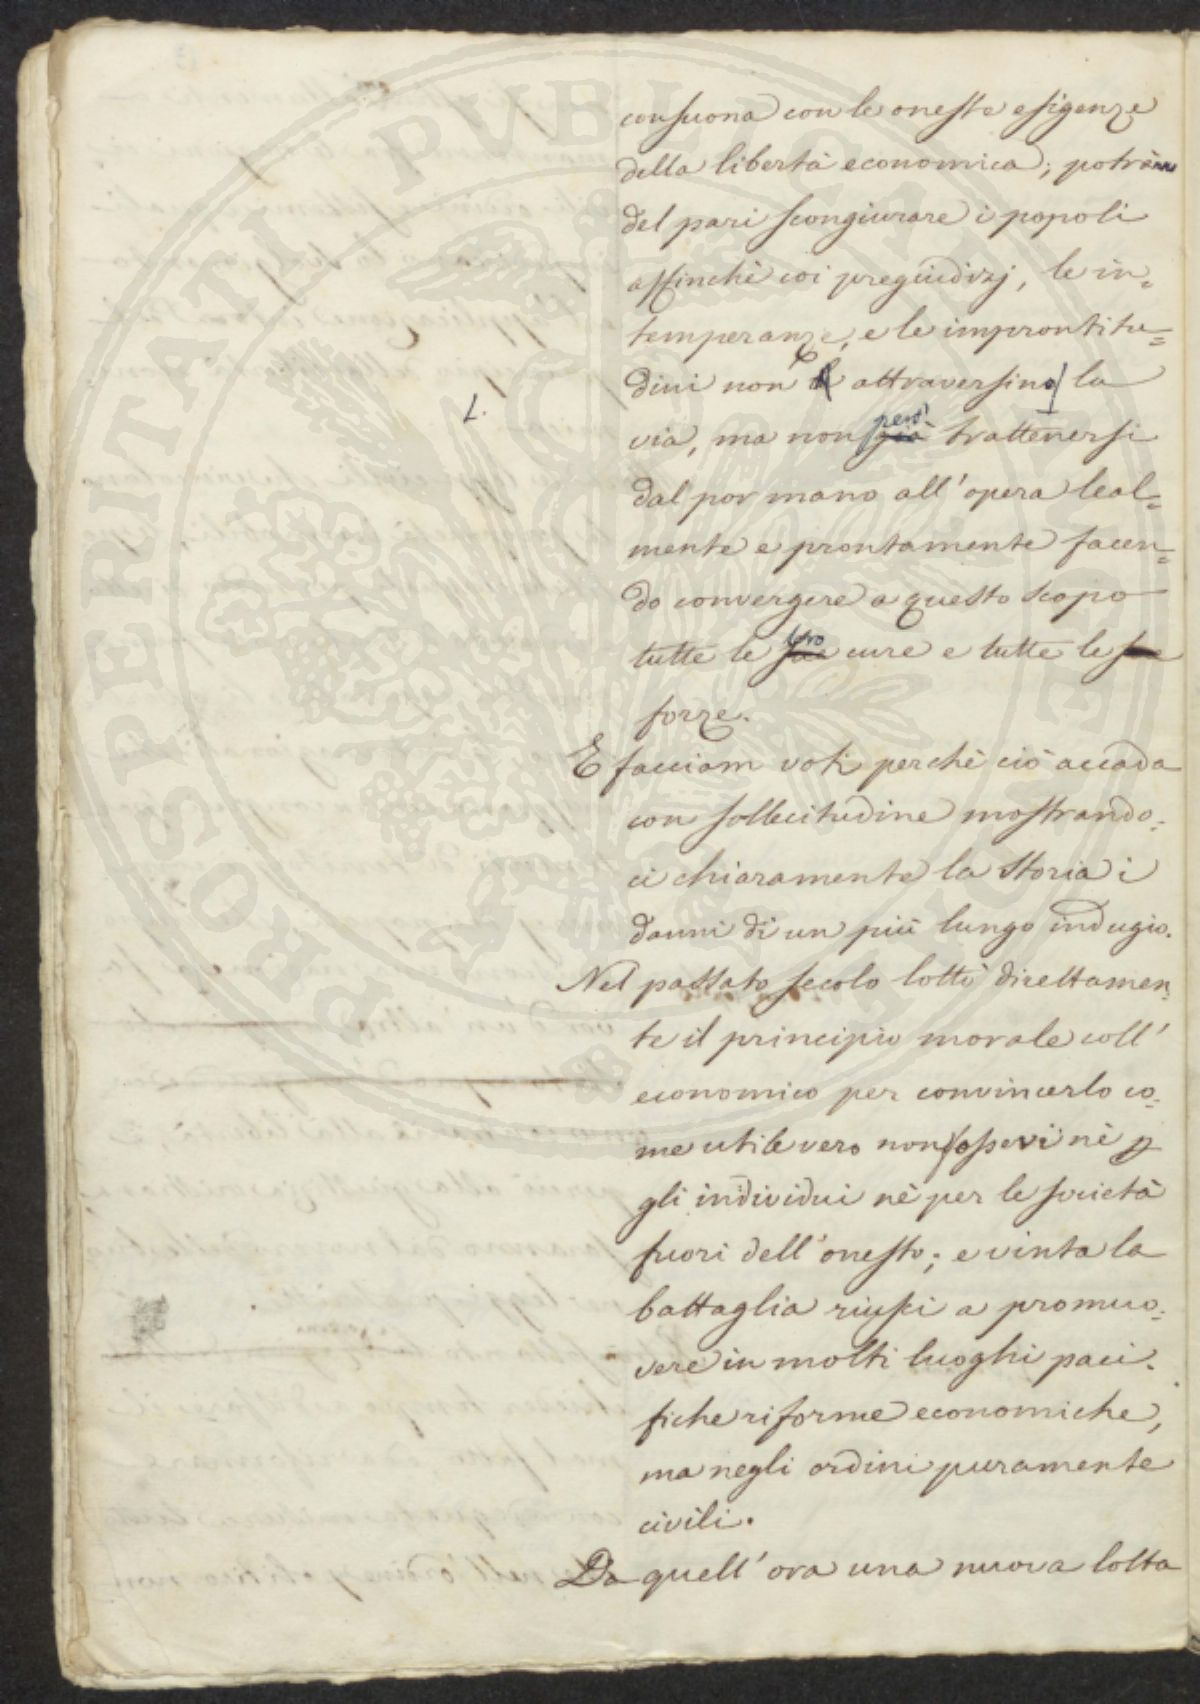 consuona con le oneste esigenze
della libertà economica; potranno
del pari scongiurare i popoli
affinchè coi pregiudizj, le in=
temperanze, e le improntitu=
dini non attraversino la
L.
via, ma non però già trattenersi
dal por mano all'opera leal=
mente e prontamente facen=
do convergere a questo scopo
tutte le loro sue cure e tutte le sue
forze.
E facciam voti perchè ciò accada
con sollecitudine mostrando=
ci chiaramente la storia i
danni di un più lungo indugio.
Nel passato secolo lottò direttamen=
te il principio morale coll'
economico per convincerlo co=
me utile vero non esservi nè p
gli individui nè per le società
fuori dell'onesto; e vinta la
battaglia riuscì a promuo=
vere in molti luoghi paci=
fiche riforme economiche,
ma negli ordini puramente
civili.
Da quell'ora una nuova lotta
PROSPERITATI PUBLICAE